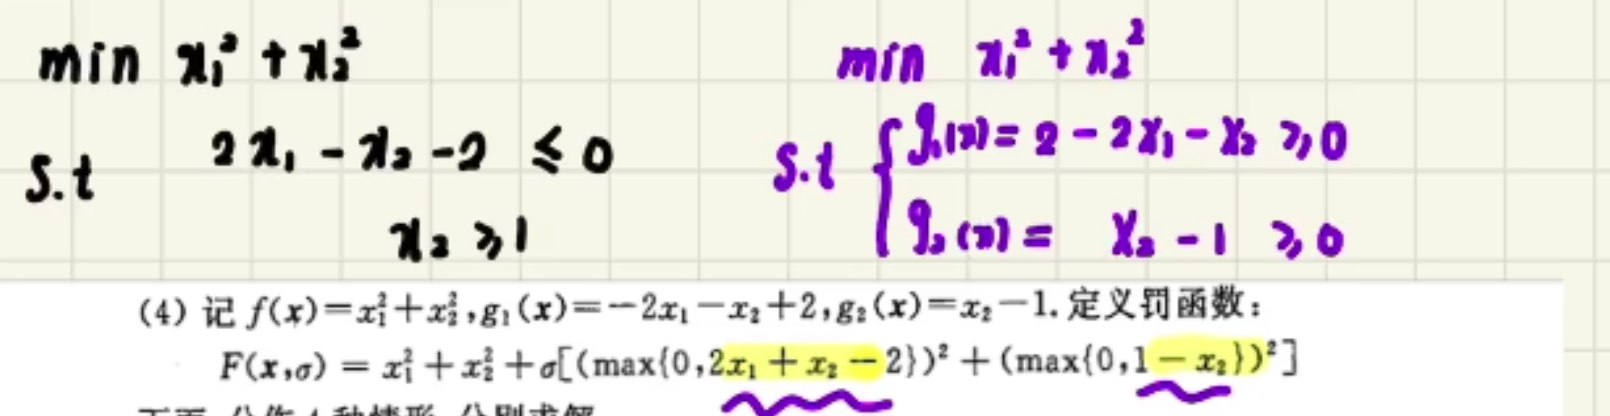 min x₁² + x₂²
s.t 2x₁ - x₂ - 2 ≤ 0
x₂ ≥ 1
min x₁² + x₂²
s.t { g₁(x) = 2 - 2x₁ - x₂ ≥ 0
g₂(x) = x₂ - 1 ≥ 0
(4) 记 f(x)=x₁²+x₂²,g₁(x)=-2x₁-x₂+2,g₂(x)=x₂-1.定义罚函数:
F(x,σ) = x₁²+x₂²+σ[(max{0,2x₁+x₂-2})²+(max{0,1-x₂})²]